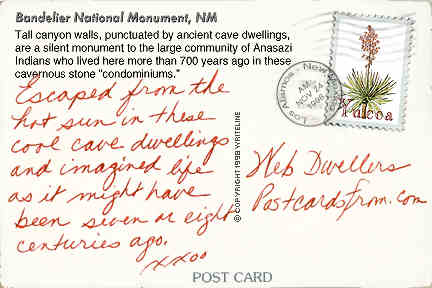 Bandelier National Monument, NM
Tall canyon walls, punctuated by ancient cave dwellings,
are a silent monument to the large community of Anasazi
Indians who lived here more than 700 years ago in these
cavernous stone "condominiums."
Escaped from the
hot sun in these
cool cave dwellings
and imagined life
as it might have
been seven or eight
centuries ago.
xxoo
© COPYRIGHT 1998 WRITELINE
Los Alamos - New Mexico
AM
NOV 14
1998
Yucca
Web Dwellers
Postcardsfrom.com
POST CARD